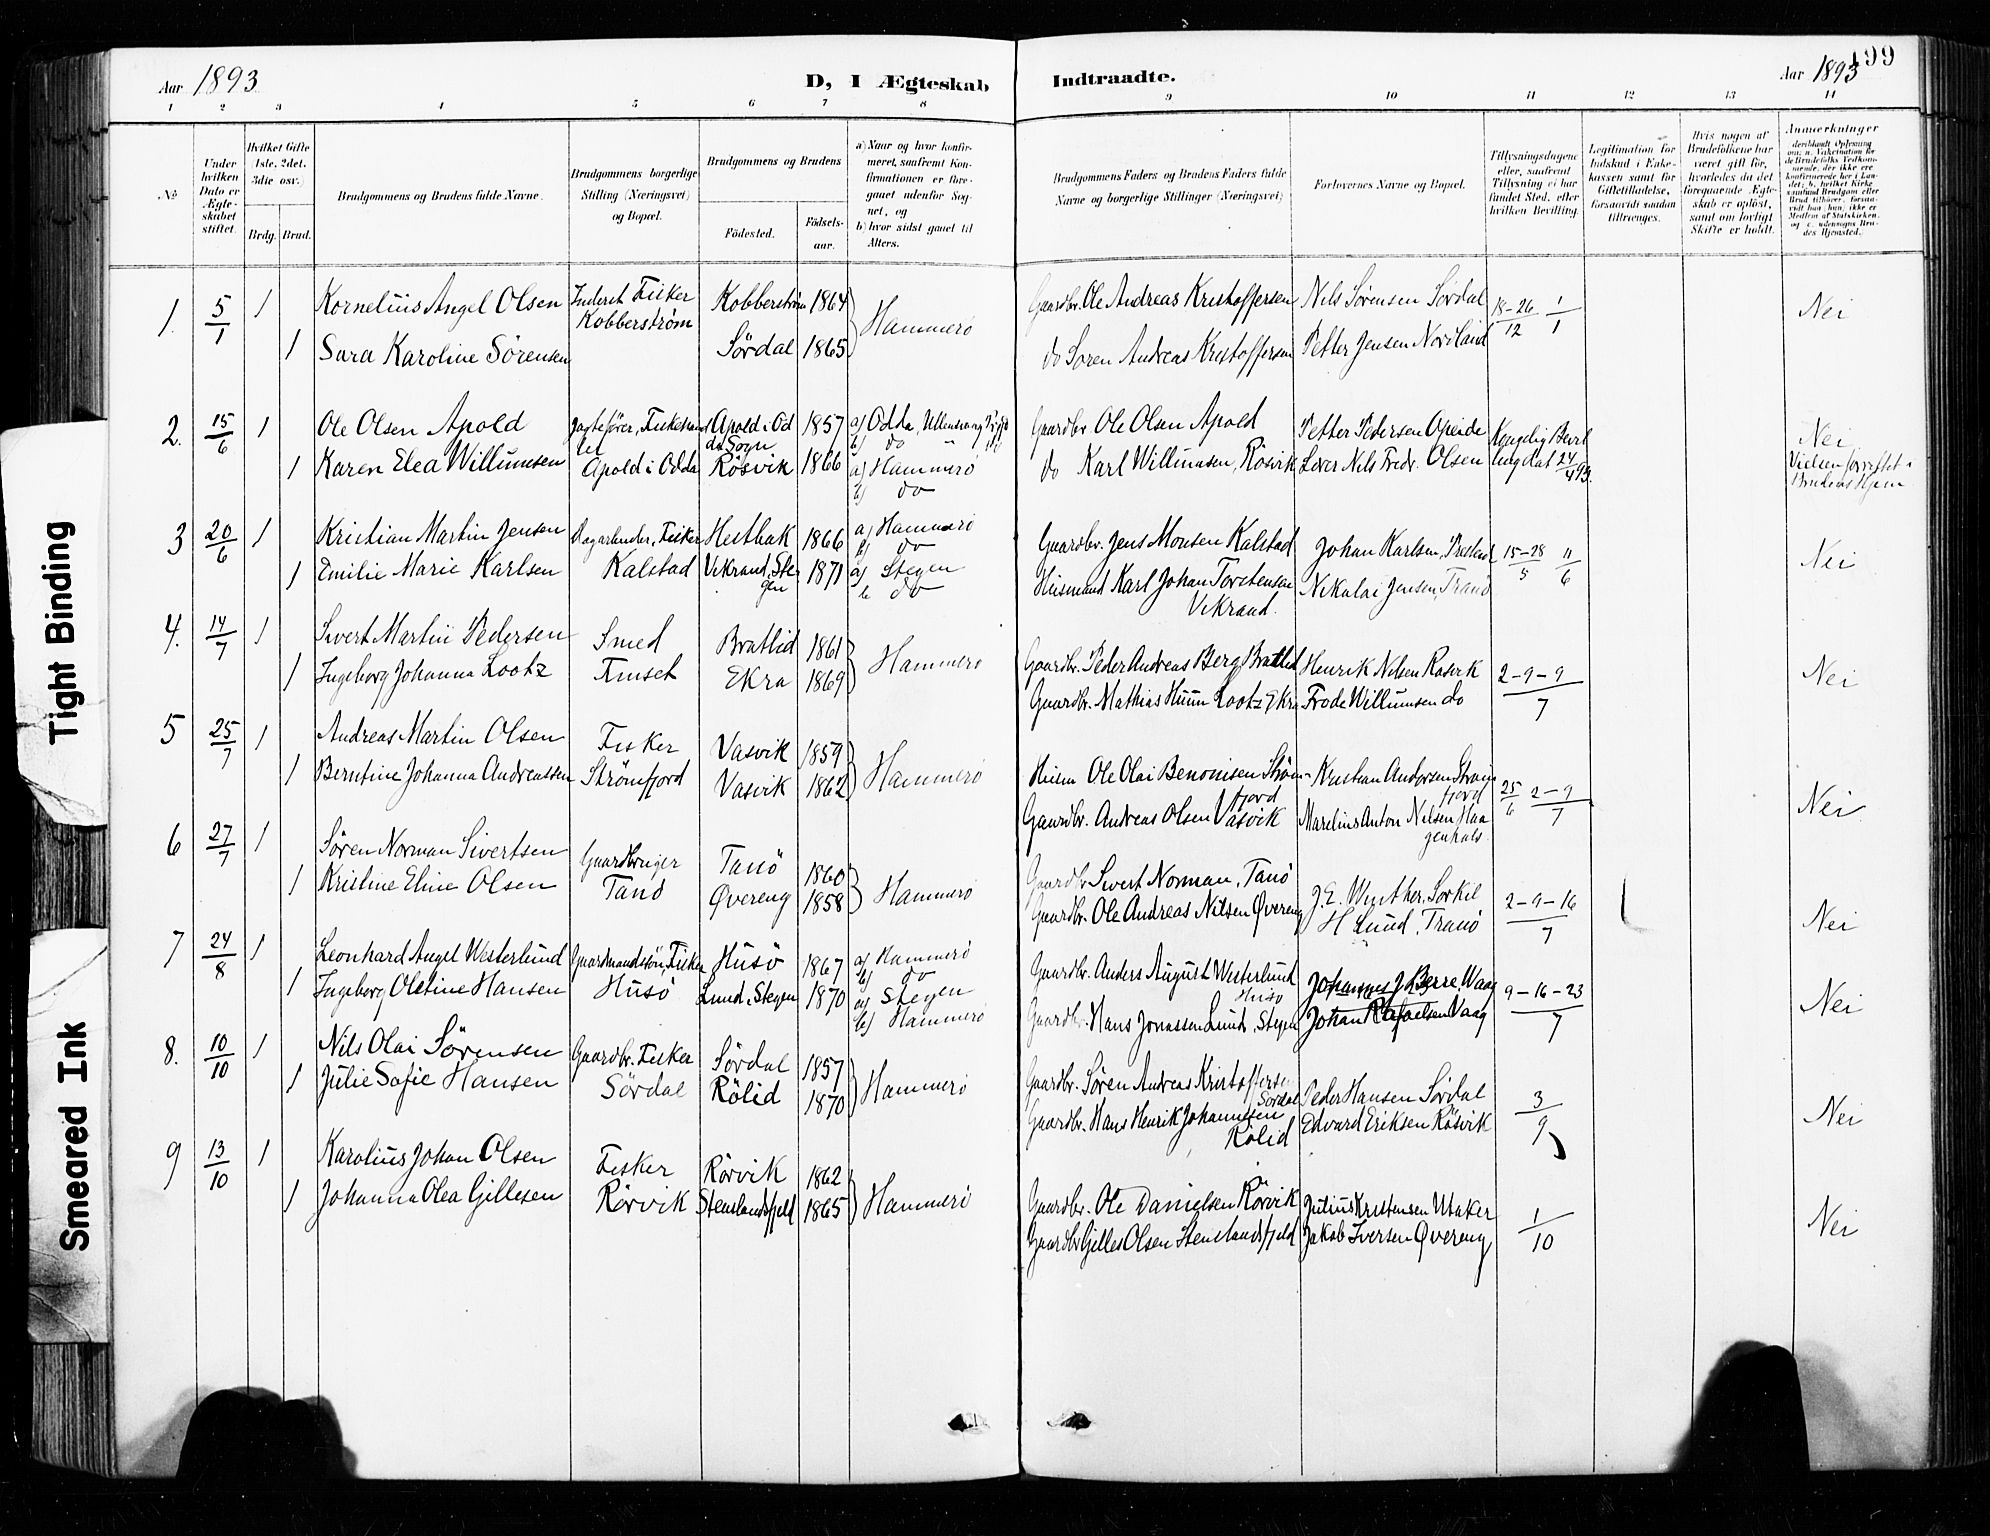 199
Aar 1893
D, I Ægteskab
Indtraadte.
Aar 1893
1 2 3 4 5 6 7 8 9 10 11 12 13 14
No
Under hvilken Dato er Ægteskabet stiftet.
Hvilket Gifte 1ste, 2det, 3die osv.)
Brdg. Brud.
Brudgommens og Brudens fulde Navne.
Brudgommens borgerlige Stilling (Næringsvei) og Bopæl.
Brudgommens og Brudens
Fødested.
Fødselsaar.
a) Naar og hvor konfirmeret, saafremt Konfirmationen er foregaaet udenfor Sognet, og
b) hvor sidst gaaet til Alters.
Brudgommens Faders og Brudens Faders fulde Navne og borgerlige Stillinger (Næringsvei)
Forlovernes Navne og Bopæl.
Tillysningsdagene eller, saafremt Tillysning ei har fundet Sted, efter hvilken Bevilling.
Legitimation for Indskud i Enkekassen samt for Giftetilladelse, forsaavidt saadan tiltrænges.
Hvis nogen af Brudefolkene har været gift før, hvorledes da det foregaaende Ægteskab er opløst, samt om lovligt Skifte er holdt.
Anmerkninger
1. 5/1 1 Kornelius Angel Olsen Fisker Kobberstrøm Kobberstrøm 1864 Hammerø Gaardbr. Ole Andreas Kristoffersen Nils Sørensen Sørdal 18-26/12 1/1 Nei
1 Sara Karoline Sørensen Sördal 1865 do Sören Andreas Kristoffersen Petter Jensen Nordland
2. 15/6 1 Ole Olsen Apold Jagtefører, Apold i Odda Apold i Odda Sogn 1857 a) Odda, b) do Gaardbr Ole Olsen Apold Petter Pedersen Opeide Kongelig Bevilling dat 24/4 93. Nei
1 Karen Elea Willumsen Rösvik 1866 a) Hammerö b) do do Karl Willumsen, Rösvik Nils Fredr. Olsen Vielsen forrettet i Brudens Hjem
3 20/6 1 Kristian Martin Jensen Fisker Kalstad Hestbak 1866 a) Hammerö b) do Gaardbr. Jens Monsen Kalstad Johan Karlsen, 15-28/5 11/6 Nei
1 Emilie Marie Karlsen Vikrand, Stegen 1871 a) Stegen b do Husmand Karl Johan Torstensen Vikrand. Nikolai Jensen, Tranö
4. 14/7 1 Sivert Martin Pedersen Smed Finset Bratlid 1861 Hammerö Gaardbr. Peder Andreas Berg Bratlid Henrik Nilsen Rösvik 2-9-9/7 Nei
1 Ingeborg Johanna Lootz Ekra 1869 Gaardbr. Mathias Huun Lootz Ekra Frode Willumsen do
5 25/7 1 Andreas Martin Olsen Fisker Strömfjord Vasvik 1859 Hammerö Husm Ole Olai Benonisen Strömfjord Kristian Andersen Strømfjord 25/6 2-9/7 Nei
1 Berntine Johanna Andreassen Vasvik 1862 Gaardbr. Andreas Olsen Vasvik Marelius Anton Nilsen Haagenhals.
6 27/7 1 Sören Norman Sivertsen Gaardbruger Tanö Tanö 1860 Hammerö Gaardbr Sivert Norman, Tanö J. E. Winther, Sorkil 2-9-16/7 Nei
1 Kristine Eline Olsen Øvereng 1858 Gaardbr. Ole Andreas Nilsen Øvereng H Lund, Tranö
7 24/8 1 Leonhard Angel Westerlund Gaardmandssön, Fisker Husö Husö 1867 a) Hammerö b) do Gaardbr. Anders August Westerlund Husö Johannes J Berre, Vaag 9-16-23/7 Nei
1 Ingeborg Oletine Hansen Lund, Stegen 1870 a) Stegen b) Hammerö Gaardbr. Hans Jonassen Lund, Stegen Johan Rafaelsen Vaag
8. 10/10 1 Nils Olai Sörensen Gaardbr. Fisker Sördal Sördal 1857 Hammerö Gaardbr. Sören Andreas Kristoffersen Sördal Peder Hansen Sördal 3/9 Nei
1 Julie Sofie Hansen Rölid 1870 Gaardbr. Hans Henrik Johannesen Rölid Edvard Eriksen Rösvik
9 13/10 1 Karolius Johan Olsen Fisker Rörvik Rörvik 1862 Hammerö Gaardbr. Ole Danielsen Rörvik Julius Kristensen Utaker 1/10 Nei
1 Johanna Olea Gillesen Stenslandsfjeld 1865 Gaardbr Gilles Olsen Stenslandsfjeld Jakob Iversen Øvereng
Tight Binding
Smeared Ink